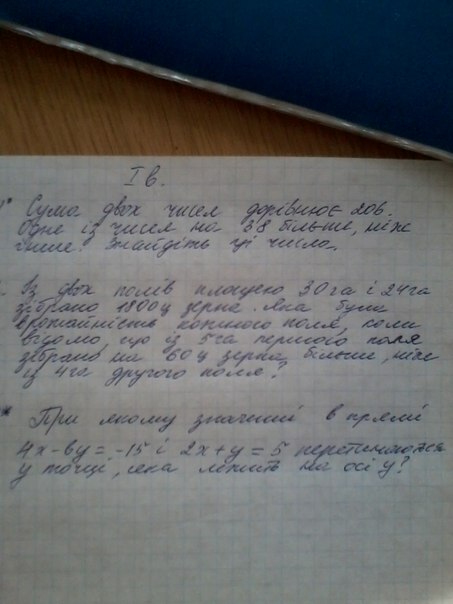 І в.
1* Сума двох чисел дорівнює 206.
Одне із чисел на 38 більше, ніж
інше. Знайдіть ці числа.
Із двох полів площею 30га і 24га
зібрано 1800ц зерна. Яка була
врожайність кожного поля, коли
відомо, що із 5га першого поля
зібрано на 60ц зерна більше, ніж
із 4га другого поля?
* При якому значенні в прямі
4x-вy=-15 і 2x+y=5 перетинаються
у точці, яка лежить на осі y?